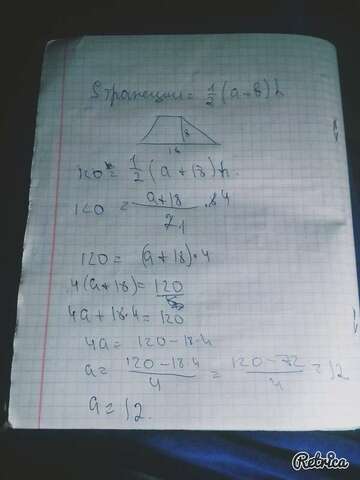 Sтрапеции = 1/2 (a+b) h
8
18
120 = 1/2 (a + 18) h.
120 = a+18/2 1 · 8 4
120 = (a + 18) · 4
4(a+18) = 120
4a + 18·4 = 120
4a = 120 - 18·4
a = 120-18·4/4 = 120-72/4 = 12
a = 12.
Retrica